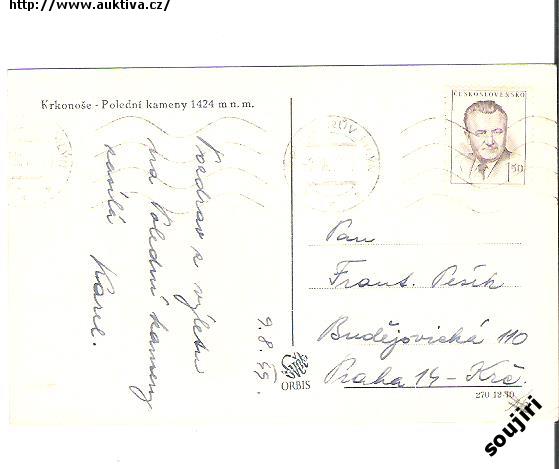 http://www.auktiva.cz/
Krkonoše - Polední kameny 1424 m n. m.
ČESKOSLOVENSKO
1 50
Pozdrav z výletu
na Polední kameny
zasílá Karel.
9.8.55.
Pan
Frant. Pešík
Budějovická 110
Praha 14 - Krč.
ORBIS
soujiri